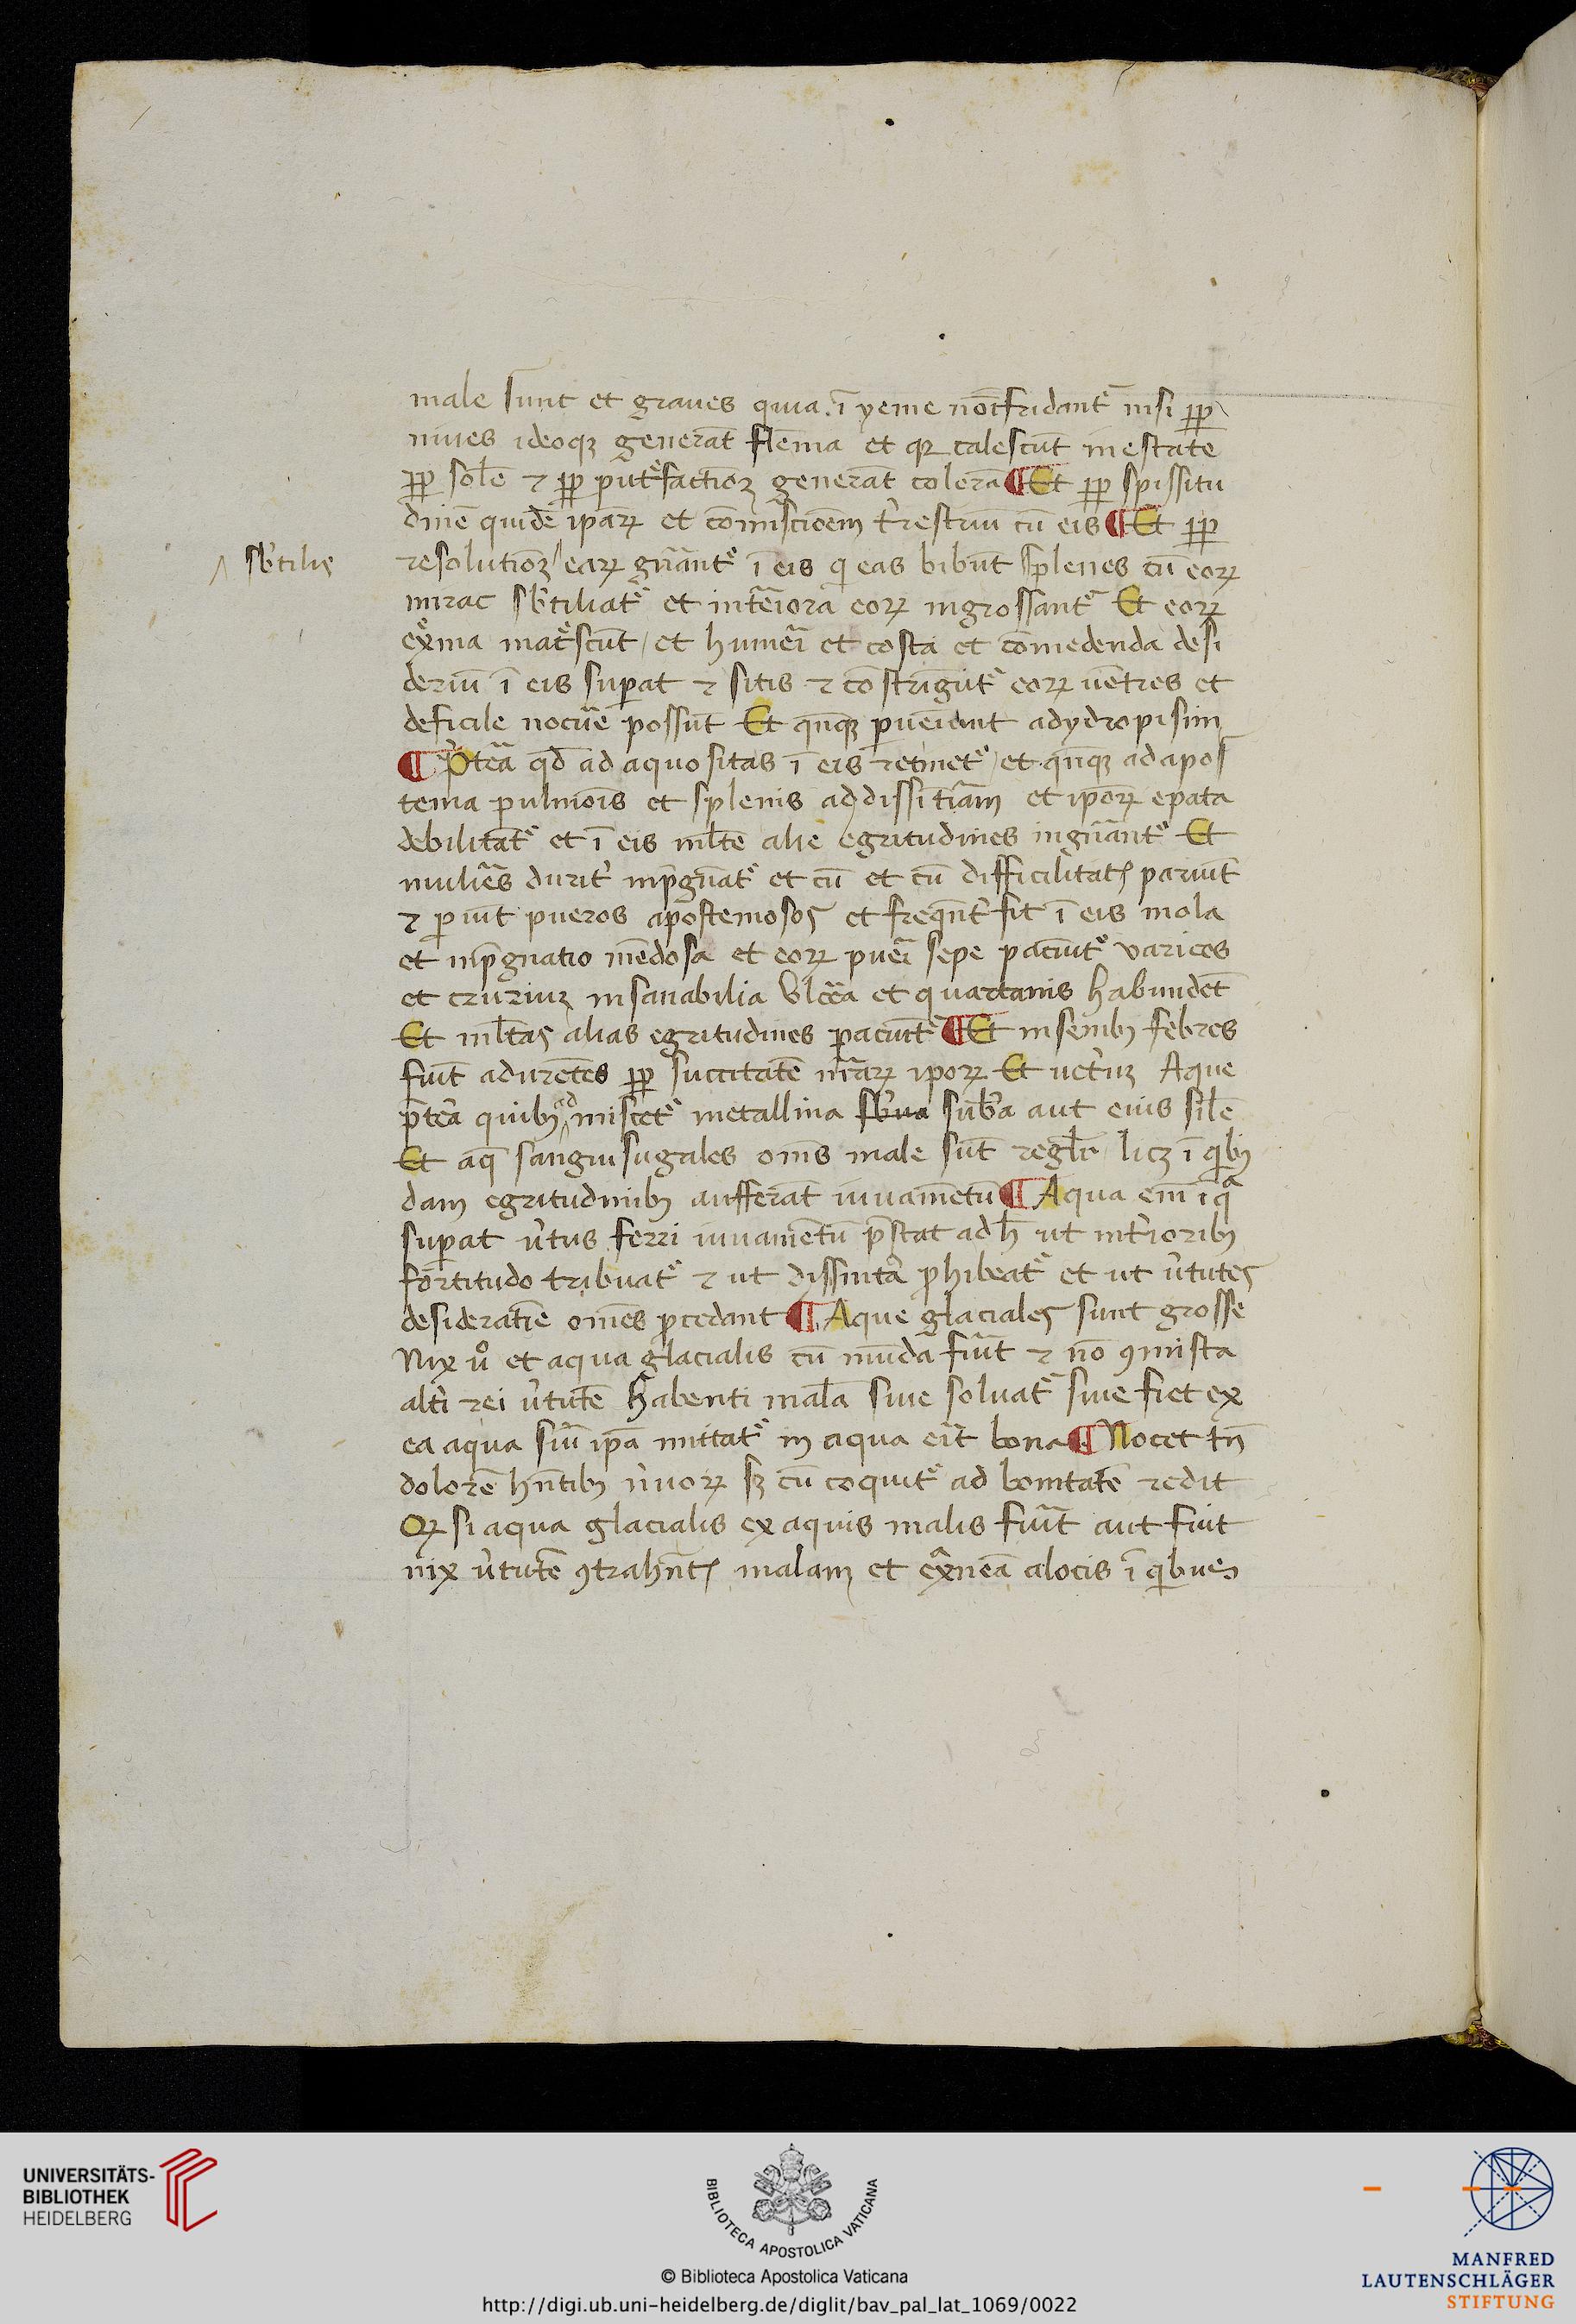 male sunt et graues quia ī yeme nōĩfridantᷣ nisi ꝓꝑ
niues ideoqꝫ generāt flēma et qꝛ calescūt in estate
ꝓꝑ solē ⁊ ꝓꝑ putᷣfactiōꝫ generāt colerā ¶ Et ꝓꝑ spissitu
dinē quidē ipaꝝ et cōmiscioēm tr̄estriū cū eis ¶ Et ꝓꝑ
sb̓tilis
resolutiōꝫ eaꝝ gn̄antᷣ ī eis qi eas bibūt splenes cū eoꝝ
mirac sb̓tiliatᷣ et int̄eiora eoꝝ ingrossantᷣ Et eoꝝ
ex̄ma matᷣscūt et humeī et costa et cōmedenda desi
deriū ī eis suꝑat ⁊ sitis ⁊ cōstringūtᷣ eoꝝ uētres et
deficile nocūe possūt Et qn̄qꝫ ꝑueniunt ad ydropisim
¶ P̄teā qd̄ ad aquositas ī eis retinetᷣ et qn̄qꝫ ad apos
tema pulmoīs et splenis ad dissint̄iam et ipoꝝ epata
debilitātᷣ et ī eis ml̄te alie egritudines ingn̄antᷣ Et
mulieēs durit̓ inp̄gn̄atᷣ et cū et cū difficilitatꝭ pariūt
⁊ ꝑiūt pueros apostemosos et freqn̄t̓ fit ī eis mola
et inp̄gnatio mēdosa et eoꝝ puēi sepe patiūtᷣ varices
et cruriuꝫ insanabilia vlcēa et quartanis habundēt
Et ml̄tas alias egritudines patiūtᷣ ¶ Et in senibꝫ febres
fiūt adurētes ꝓꝑ siccitatē nr̄aꝝ ipoꝝ Et uet̓uꝫ Aque
p̄tēa quibꝫ admiscetᷣ metallina sb̓na sub̄a aut eius sil̄e
Et aq̄ sanguisugales om̄s male sūt regl̄r licꝫ ī qibꝫ
dam egritudinibꝫ aufferāt iuuamētū ¶ Aqua em̄ ī qa
suꝑat ūtus ferri iuuamētū p̄stat ad h̄ ut int̓ioribꝫ
fortitudo tribuatᷣ ⁊ ut dissint̄a ꝓhibeatᷣ et ut ūtutes
desideratīe om̄es ꝓcedant ¶ Aque glaciales sunt grosse
Nix uͦ et aqua glacialis cū mūda fiūt ⁊ nō ꝯmista
alt̓i rei ūtutē habenti malā siue soluatᷣ siue fiet ex
ea aqua siū ipā mittatᷣ in aqua erīt bona ¶ Nocet tn̄
dolorē hn̄tibꝫ n̓uoꝝ sꝫ cū coquitᷣ ad bonitatē redit
Qꝫ si aqua glacialis ex aquis malis fiūt aut fiūt
nix ūtutē ꝯtrahn̄tꝭ malam et ex̄neā a locis ī qibus
UNIVERSITÄTS-
BIBLIOTHEK
HEIDELBERG
BIBLIOTECA APOSTOLICA VATICANA
© Biblioteca Apostolica Vaticana
http://digi.ub.uni-heidelberg.de/diglit/bav_pal_lat_1069/0022
MANFRED
LAUTENSCHLÄGER
STIFTUNG